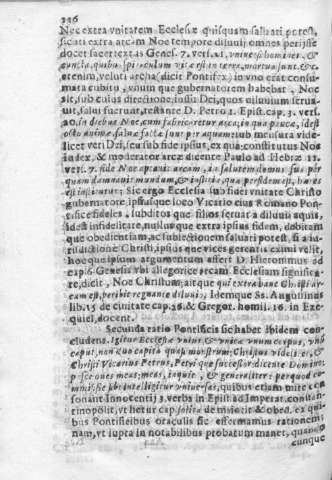 336
Nec extra vnitatem Ecclesiæ quisquam saluari potest,
sicuti extra arcam Noe tempore diluuij omnes perijsse
docet sacer textus Genes. 7. vers. 21. vniuersi homines, &
cuncta, quibus spiraculum vitæ est in terra, mortua sunt. &c.
etenim, veluti archa (dicit Pontifex) in vno erat consum
mata cubito, vnum que gubernatorem habebat, Noe
sit, sub cuius directione, iussu Dei, quos diluuium serua-
uit, salui fuerunt, testante D. Petro 1. Epist. cap. 3. vers.
20. in diebus Noe cum fabricaretur arca, in qua pauci, idest
octo animæ saluæ factæ sunt per aquam: sub mensura vide-
licet veri Dei, seu sub fide ipsius, ex qua constitutus Noe
index, & moderator arcæ dicente Paulo ad Hebræ 11.
vers. 7. fide Noe aptauit arcam, in salutem domus suæ per
quam damnauit mundum, & iustitiæ, quæ per fidem est, hæres
est institutus; Sic ergo Ecclesia sub fidei vnitate Christo
gubernatore, ipsiusque loco Vicario eius Romano Pon-
tifice fideles, subditos que filios seruat à diluuij aquis,
ideà infidelitate, nullus que extra ipsius fidem, debitam
que obedientiam, ac subiectionem saluari potest, sua iu-
risdictione Christi, ipsius que vices gerentis eximi velit,
hoc que ipsum argumentum affert D. Hieronymus ad
cap. 6 Genesis vbi allegorice arcam Ecclesiam significa-
re, dicit, Noe Christum, ait que qui extra hanc Christi ar-
cam est, peribit regnante diluuio, Idem que Ss. Augustinus
lib. 15 de ciuitate cap. 26. & Gregor. homil. 16. in Eze-
quiel, docent.
Secunda ratio Pontificis sic habet ibidem con-
cludens. Igitur Ecclesiæ vnius, & vnicæ vnum corpus, vnũ
caput, non duo capita quasi monstrum; Christus videlicet, &
Christi Vicarius Petrus, Petrique successor dicente Domino
pasce oues meas, meas, inquit, & generaliter: per quod com
misisse sibi intelligitur vniuersas, quibus etiam mire con
sonant Innocentij 3. verba in Epist. ad Imperat. constan-
tinopolit, vt hetur cap. solitæ de maiorit & obed. ex qui-
bus Pontificis oraculis sic efformamus rationem
nam, vt iupta in notabilibus probatum manet, quando
cunque